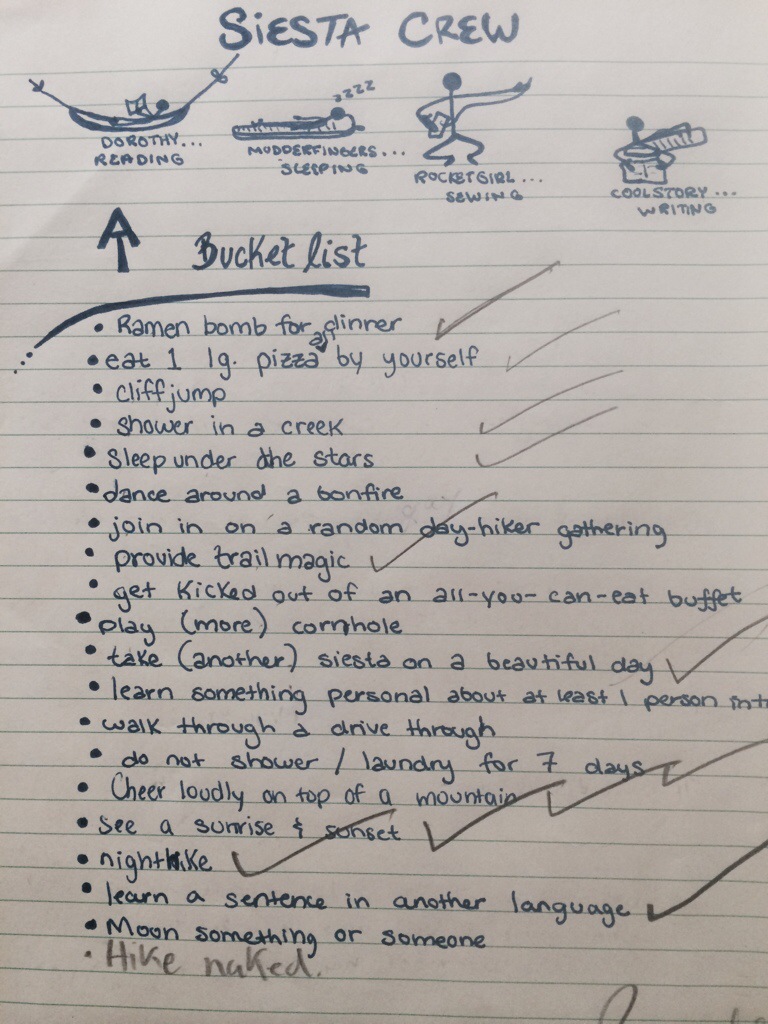 SIESTA CREW
zzzz
DOROTHY...
READING
MUDDERFINGERS...
SLEEPING
ROCKETGIRL...
SEWING
COOLSTORY...
WRITING
Bucket list
• Ramen bomb for dinner
• eat 1 lg. pizza all by yourself
• cliff jump
• shower in a creek
• sleep under the stars
• dance around a bonfire
• join in on a random day-hiker gathering
• provide trail magic
• get kicked out of an all-you-can-eat buffet
• play (more) cornhole
• take (another) siesta on a beautiful day
• learn something personal about at least 1 person
• walk through a drive through
• do not shower / laundry for 7 days
• Cheer loudly on top of a mountain
• see a sunrise & sunset
• nighthike
• learn a sentence in another language
• Moon something or someone
• Hike naked.